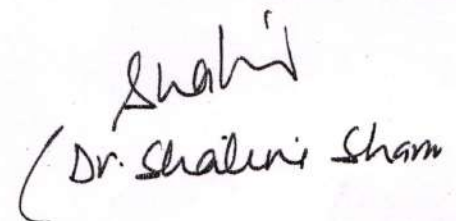 Shalini
(Dr. Shalini Sharm